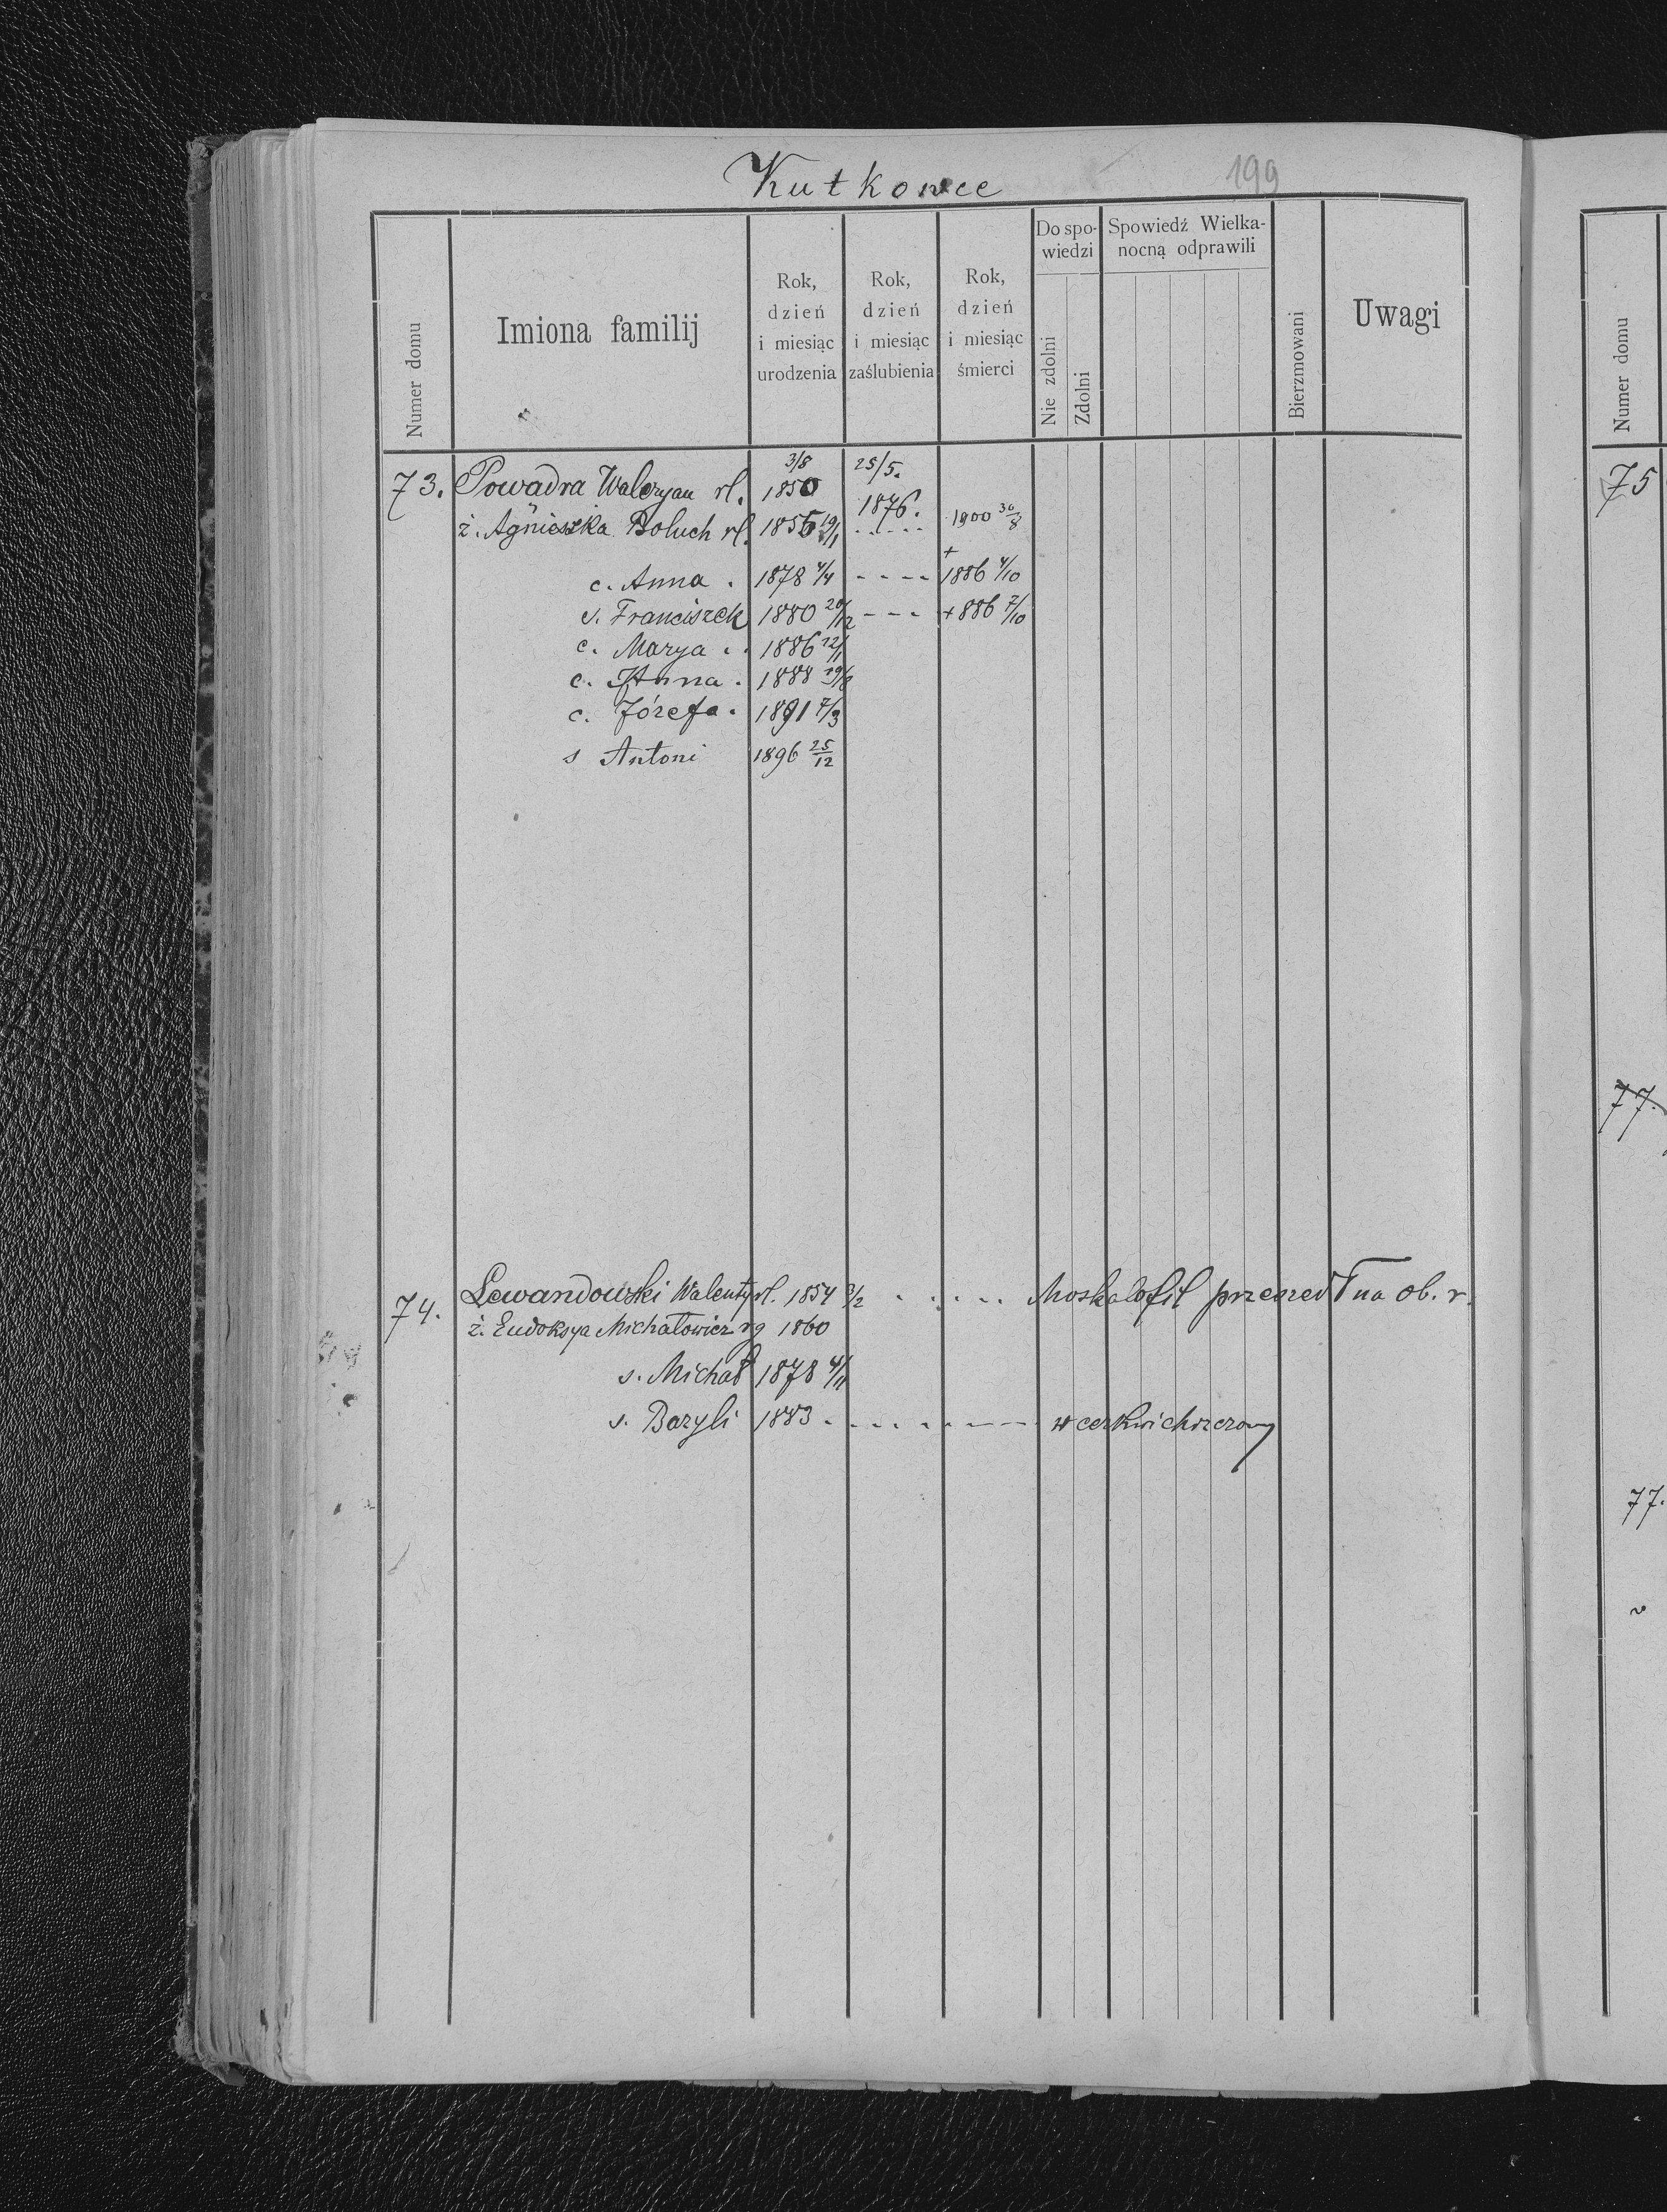 Kutkowce
199
Numer domu
Imiona familij
Rok, dzień i miesiąc urodzenia
Rok, dzień i miesiąc zaślubienia
Rok, dzień i miesiąc śmierci
Do spowiedzi
Nie zdolni
Zdolni
Spowiedź Wielkanocną odprawili
Bierzmowani
Uwagi
73. Powadra Waleryan rł. 3/8 1850 25/5. 1876.
ż. Agnieszka Boluch rł. 1855 19/1 ..... 1900 30/8
c. Anna . 1878 4/4 ---- + 1886 4/10
s. Franciszek 1880 20/12 --- +886 7/10
c. Marya . . 1886 22/1
c. Anna . 1888 29/8
c. Józefa . 1891 7/3
s Antoni 1896 25/12
74. Lewandowski Walenty rł. 1854 2/2 ..... Moskalofil przeszedł na ob. r.
ż. Eudoksya Michałowicz rg 1860
s. Michał 1878 4/11
s. Bazyli 1883 - - - - - - - w cerkwi chrzczony
Numer domu
75
77.
77.